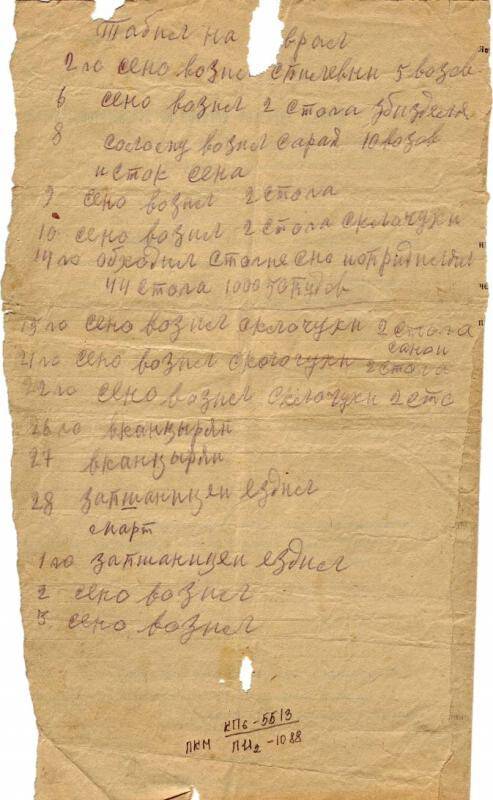 Табил на врал
2 го сено возил стилевни 5 возов
6 сено возил 2 стога збизделя
8 солому возил сарай 10 возов
исток сена
9 сено возил 2 стога
10 сено возил 2 стога склочухи
14 го обходил стогне сно
44 стога 1000 50 пудов
15 го сено возил склочухи 2 стога
21 го сено возил склочухи 2 стога
22 го сено возил склочухи 2 сто
26 го вканцырян
27 вканцырян
28 запшаницеи ездил
март
1 го запшаницеи ездил
2 сено возил
3 сено возил
КПб-5513
ПКМ ПИ2-1088